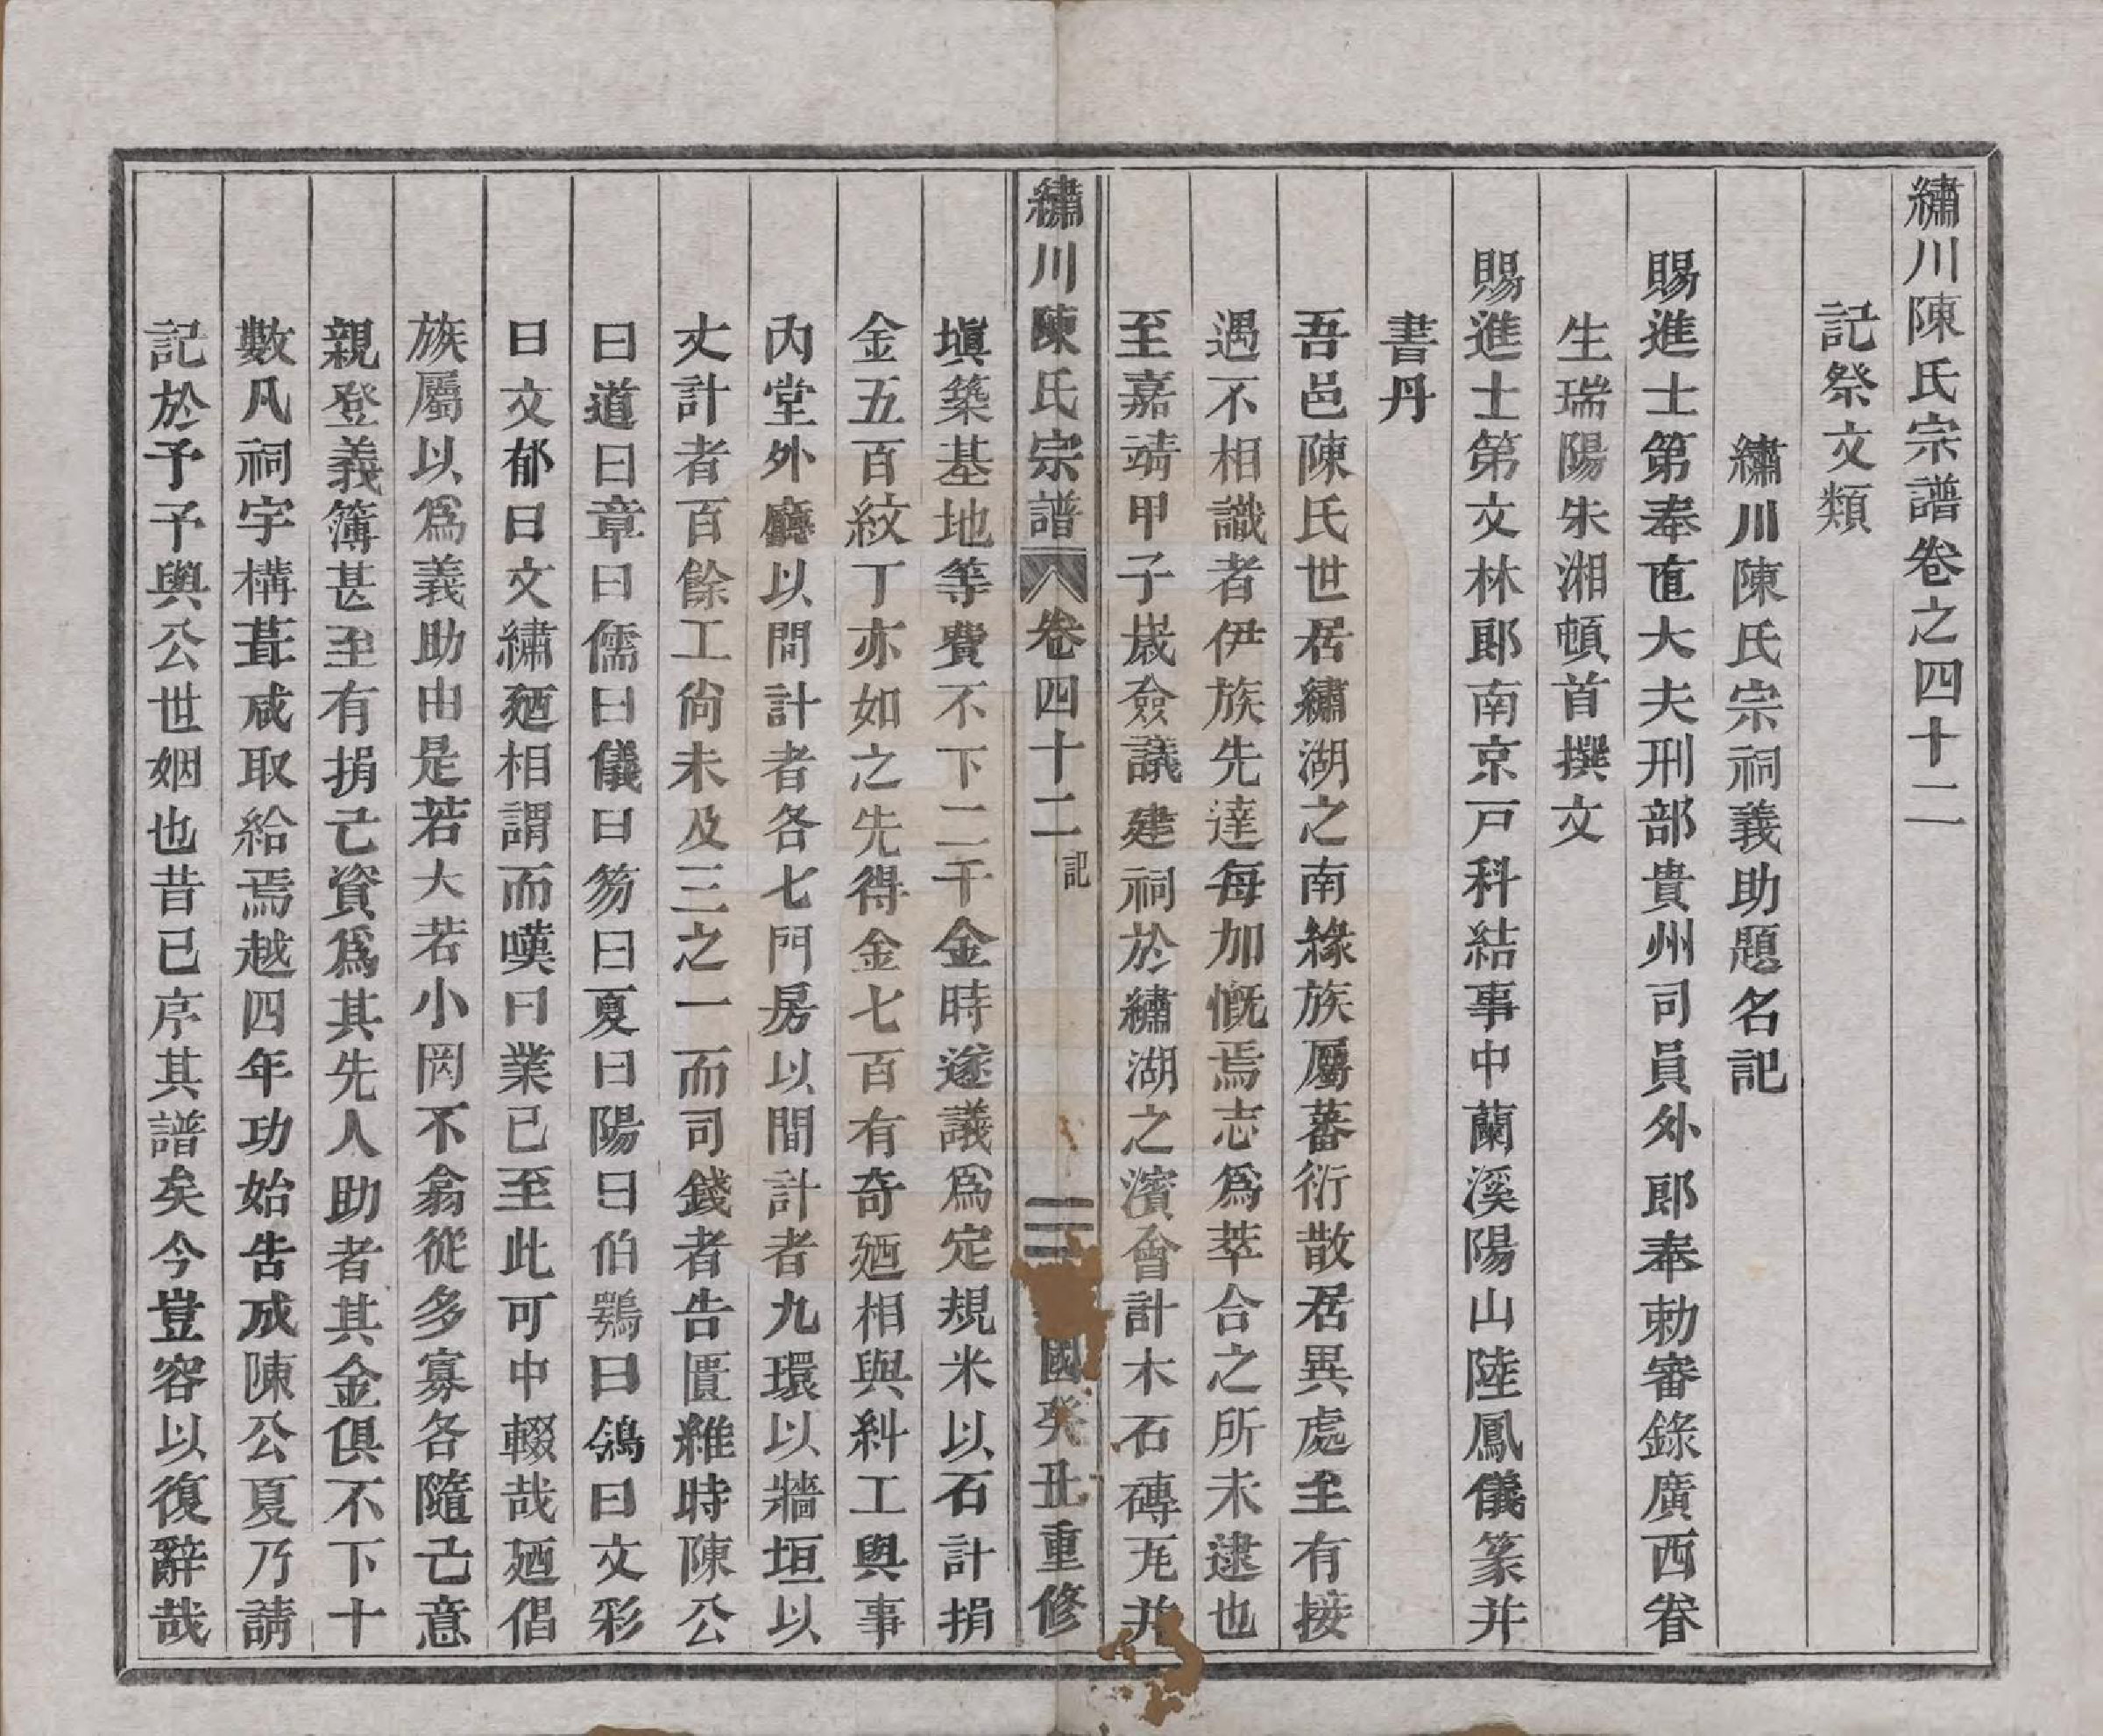 繡川陳氏宗譜卷之四十二
記祭文類
繡川陳氏宗祠義助題名記
賜進士第奉直大夫刑部貴州司員外郎奉勅審錄廣西眷
生瑞陽朱湘頓首撰文
賜進士第文林郎南京戸科給事中蘭溪陽山陸鳳儀篆并
書丹
吾邑陳氏世居繡湖之南緣族屬蕃衍散居異處至有接
遇不相識者伊族先達每加慨焉志爲萃合之所未逮也
至嘉靖甲子歲僉議建祠於繡湖之濱會計木石磚瓦并
繡川陳氏宗譜 卷四十二 記 國癸丑重修
塡築基地等費不下二千金時遂議爲定規米以石計捐
金五百紋丁亦如之先得金七百有奇廼相與糾工與事
內堂外廳以間計者各七門房以間計者九環以牆垣以
丈計者百餘工尙未及三之一而司錢者告匱維時陳公
曰道曰章曰儒曰儀曰笏曰夏曰陽曰伯鶚曰鴒曰文彩
曰文郁曰文繡廼相謂而嘆曰業已至此可中輟哉廼倡
族屬以爲義助由是若大若小罔不翕從多寡各隨己意
親登義簿甚至有捐己資爲其先人助者其金俱不下十
數凡祠宇構葺咸取給焉越四年功始告成陳公夏乃請
記於予予與公世姻也昔已序其譜矣今豈容以復辭哉